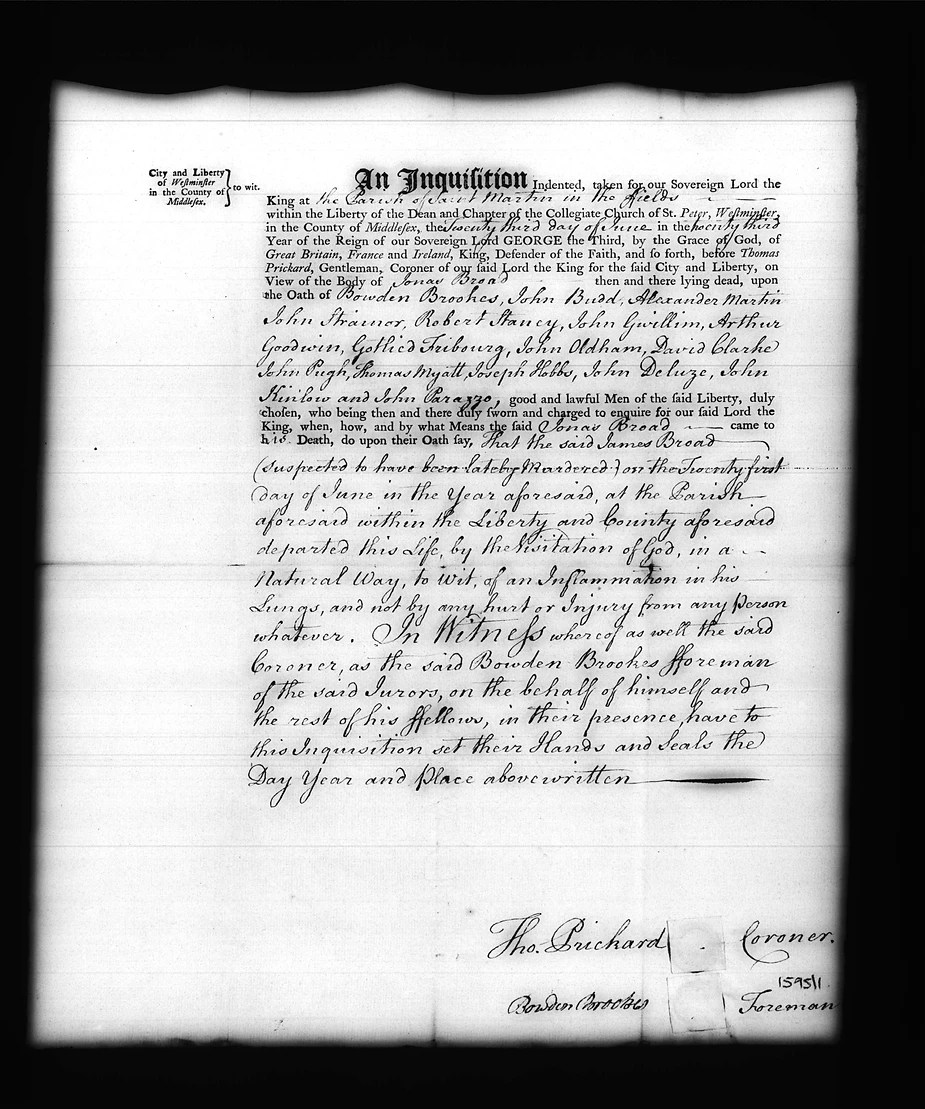 City and Liberty
of Westminster
in the County of
Middlesex.
} to wit.
An Inquisition Indented, taken for our Sovereign Lord the
King at the Parish of Saint Martin in the ffields
within the Liberty of the Dean and Chapter of the Collegiate Church of St. Peter, Westminster,
in the County of Middlesex, the Twenty third day of June in the twenty third
Year of the Reign of our Sovereign Lord GEORGE the Third, by the Grace of God, of
Great Britain, France and Ireland, King, Defender of the Faith, and so forth, before Thomas
Prickard, Gentleman, Coroner of our said Lord the King for the said City and Liberty, on
View of the Body of Jonas Broad then and there lying dead, upon
the Oath of Bowden Brookes, John Budd, Alexander Martin
John Strainor, Robert Stancy, John Gwillim, Arthur
Goodwin, Gotlied Fribourg, John Oldham, David Clarke
John Pugh, Thomas Myatt, Joseph Hobbs, John Deluze, John
Kinlow and John Parazzo, good and lawful Men of the said Liberty, duly
chosen, who being then and there duly sworn and charged to enquire for our said Lord the
King, when, how, and by what Means the said Jonas Broad came to
his Death, do upon their Oath say, That the said James Broad
(suspected to have been lately Murdered) on the Twenty first
day of June in the Year aforesaid, at the Parish
aforesaid within the Liberty and County aforesaid
departed this Life, by the Visitation of God, in a
Natural Way, to wit, of an Inflammation in his
Lungs, and not by any hurt or Injury from any Person
whatever. In Witness whereof as well the said
Coroner, as the said Bowden Brookes fforeman
of the said Jurors, on the behalf of himself and
the rest of his ffellows, in their presence, have to
this Inquisition set their Hands and Seals the
Day Year and Place abovewritten
Tho. Prickard Coroner.
1595/1
Bowden Brookes Foreman